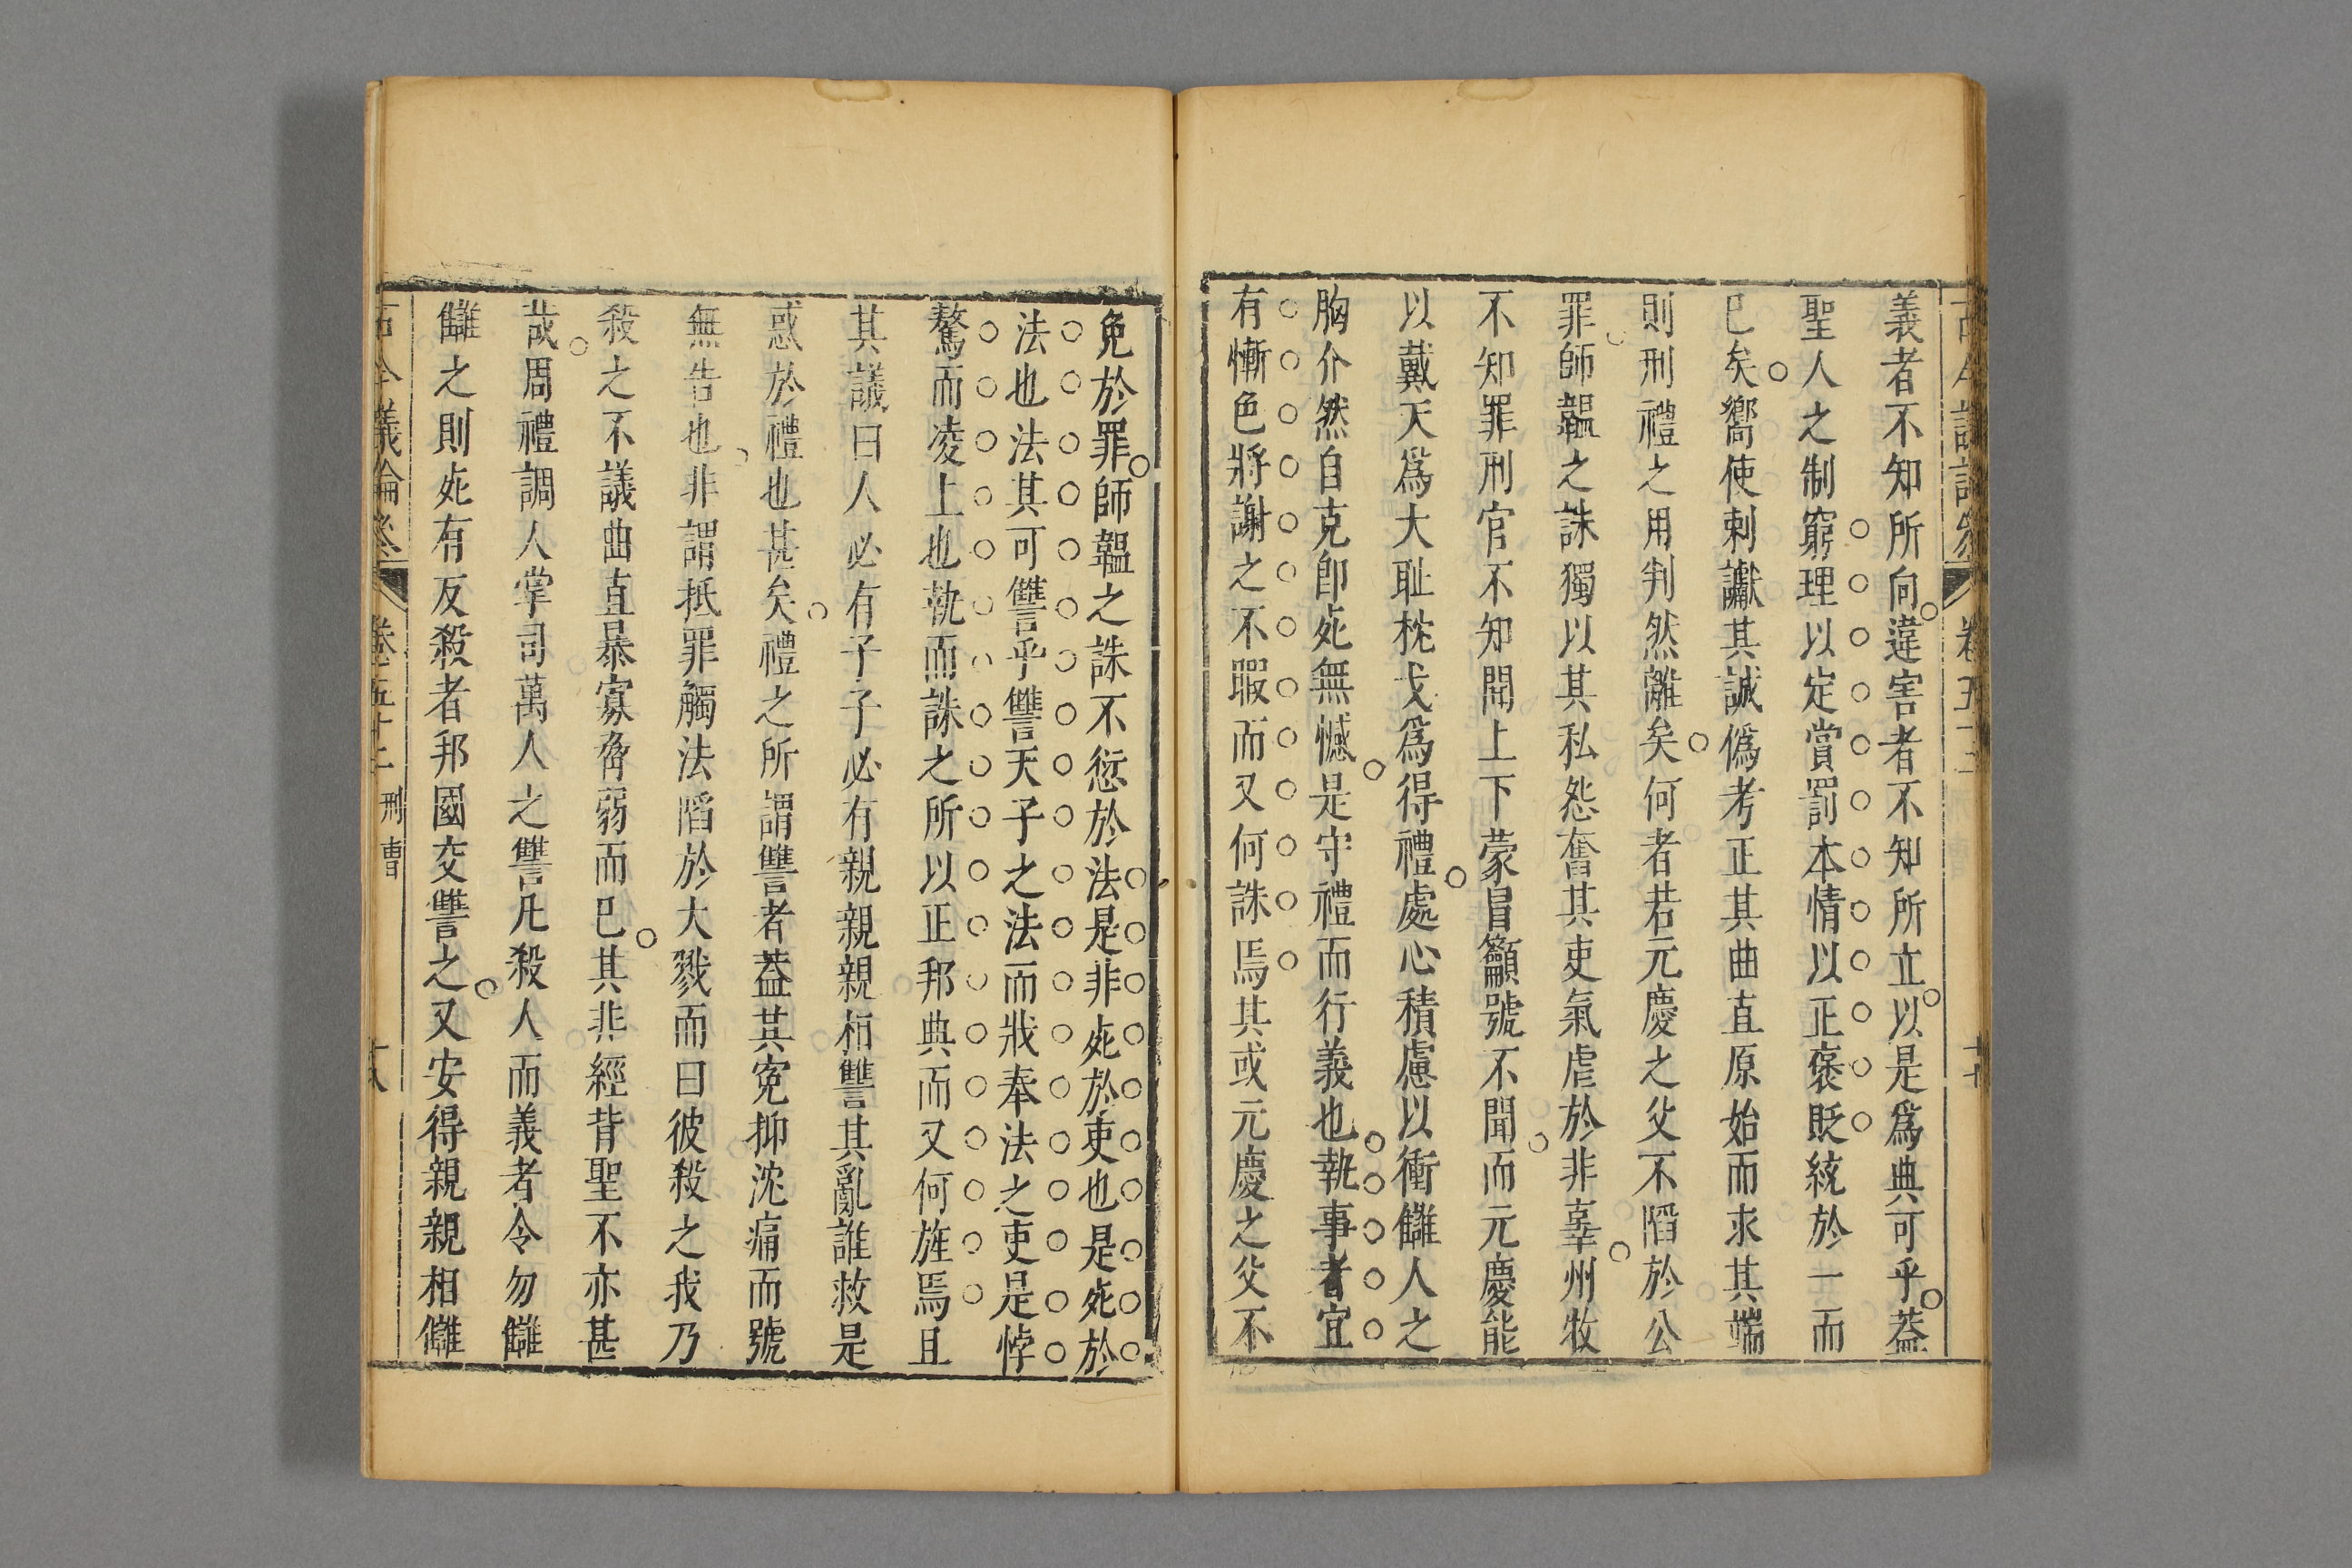 義者不知所向違害者不知所立以是爲典可乎葢
聖人之制窮理以定賞罰本情以正褒貶統於一而
巳矣嚮使刺讞其誠偽考正其曲直原始而求其端
則刑禮之用判然離矣何者若元慶之父不䧟於公
罪師韞之誅獨以其私怨奮其吏氣虐於非辜州牧
不知罪刑官不知問上下蒙冒籲號不聞而元慶能
以戴天爲大耻枕戈爲得禮處心積慮以衝讎人之
胸介然自克卽死無憾是守禮而行義也執事者宜
有慚色將謝之不暇而又何誅焉其或元慶之父不
免於罪師韞之誅不愆於法是非死於吏也是死於
法也法其可讐乎讐天子之法而戕奉法之吏是悖
驁而凌上也執而誅之所以正邦典而又何旌焉且
其議曰人必有子子必有親親親相讐其亂誰救是
惑於禮也甚矣禮之所謂讐者葢其寃抑沈痛而號
無告也非謂抵罪觸法䧟於大戮而曰彼殺之我乃
殺之不議曲直暴寡脅弱而巳其非經背聖不亦甚
哉周禮調人掌司萬人之讐凡殺人而義者令勿讎
讎之則死有反殺者邦國交讐之又安得親親相讎
古今議論參 卷五十二 刑曹 十八